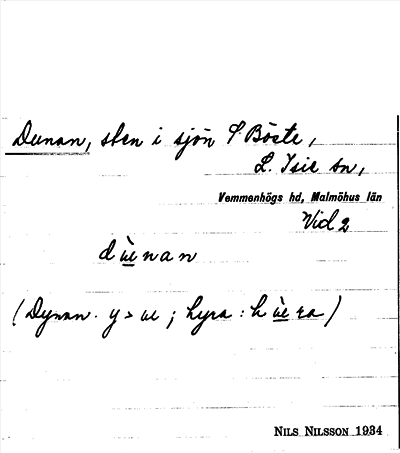 Dunan, sten i sjön S. Böste,
L. Isie sn,
Vemmenhögs hd, Malmöhus län
Vid 2
dùenan
(Dynan. y > ue ; hyra : hùera)
NILS NILSSON 1934